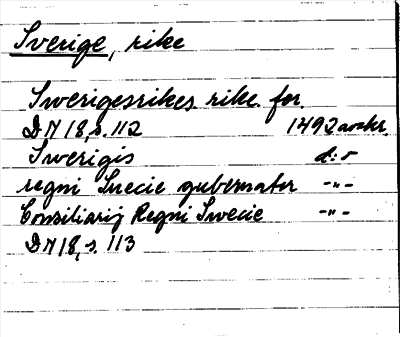 Sverige, rike
Swerigesrikes rike for
DN 18, s. 112 1492 avskr.
Swerigis d:o
regni Suecie gubernator -"-
Consiliarij Regni Swecie -"-
DN 18, s. 113